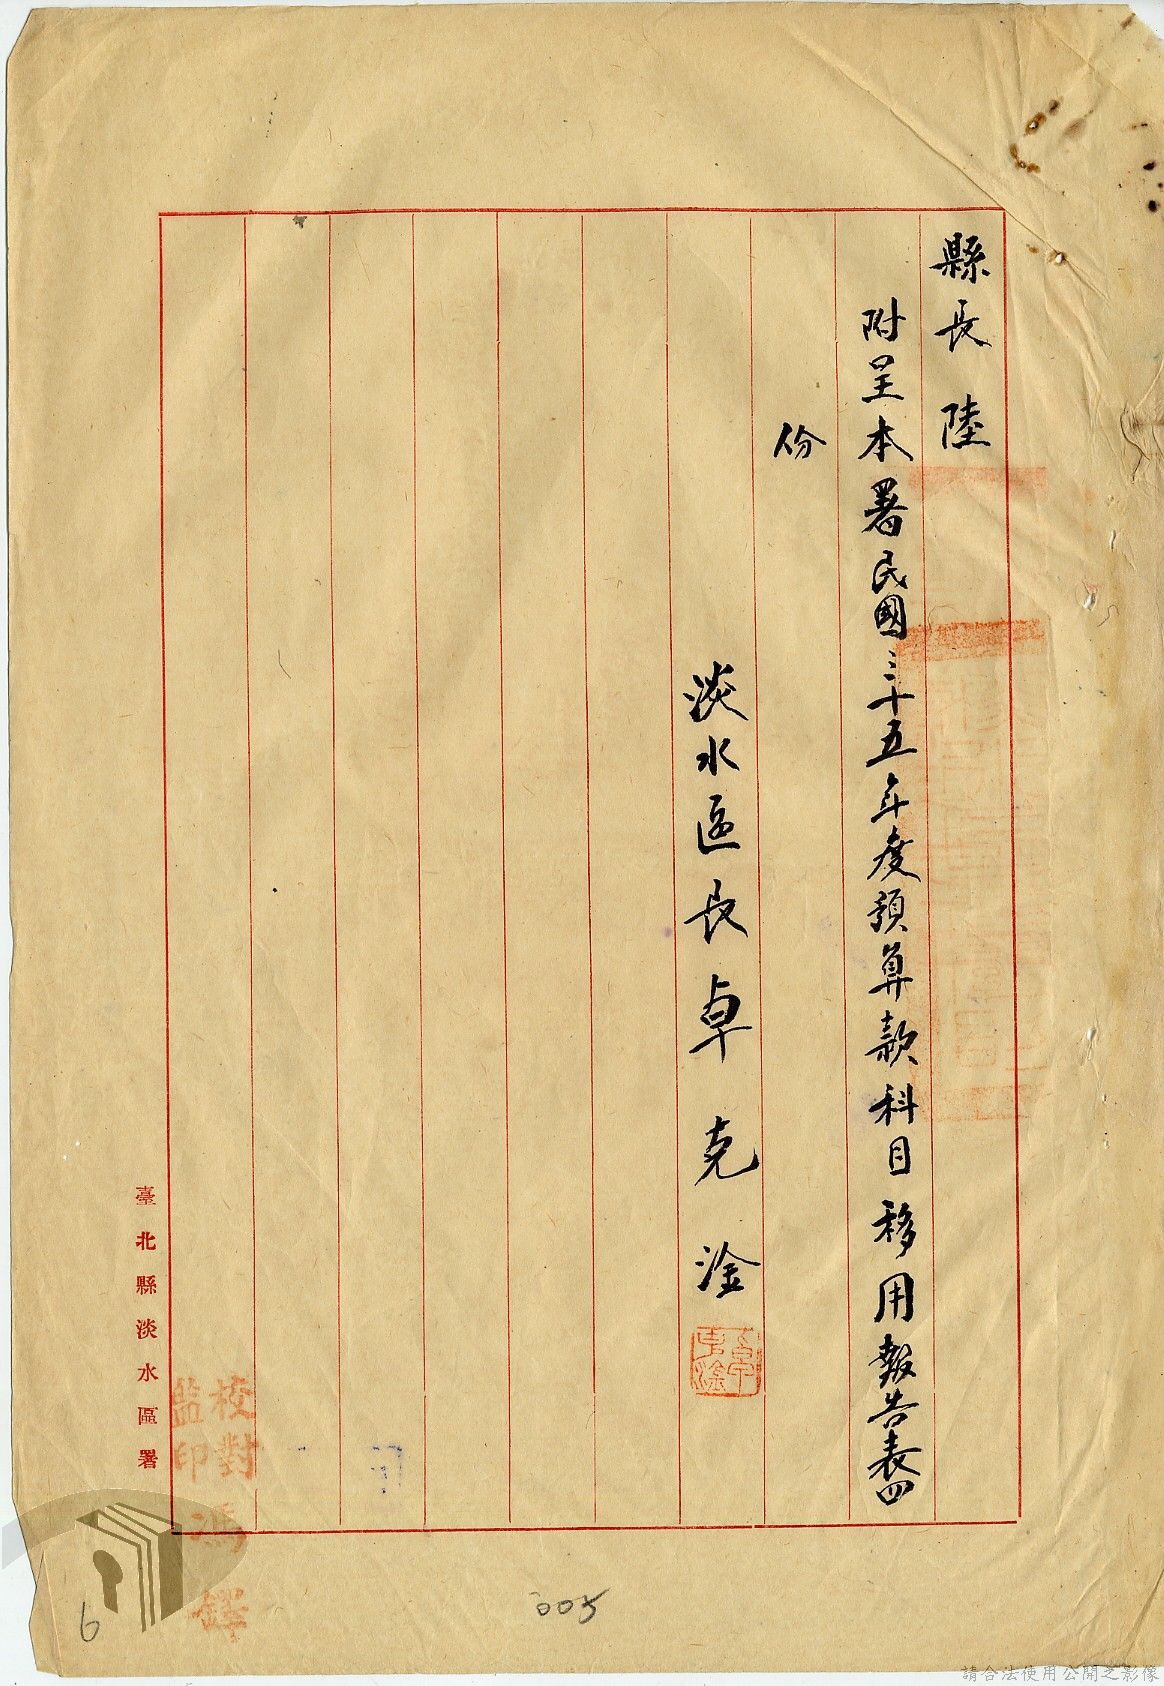 縣長 陸
附呈本署民國三十五年度預算款科目移用報告表四
份
淡水區長卓克淦
臺北縣淡水區署
校對
監印
馮鐸
6
005
請合法使用公開之影像